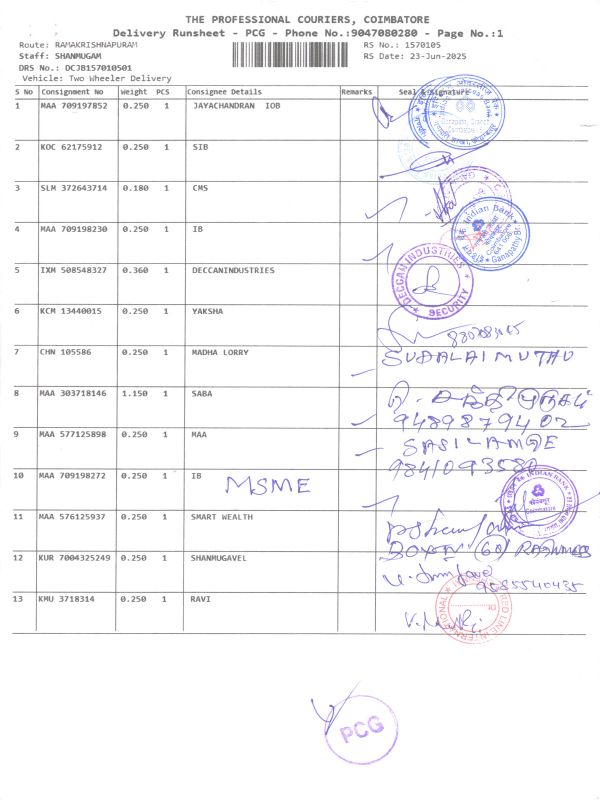 THE PROFESSIONAL COURIERS, COIMBATORE
Delivery Runsheet - PCG - Phone No.:9047080280 - Page No.:1
Route: RAMAKRISHNAPURAM
RS No.: 1570105
Staff: SHANMUGAM
RS Date: 23-Jun-2025
DRS No.: DCJB157010501
Vehicle: Two Wheeler Delivery
S No Consignment No Weight PCS Consignee Details Remarks Seal & Signature
1 MAA 709197852 0.250 1 JAYACHANDRAN IOB
2 KOC 62175912 0.250 1 SIB
3 SLM 372643714 0.180 1 CMS
4 MAA 709198230 0.250 1 IB
Indian Bank
Ganapathy Br.
5 IXM 508548327 0.360 1 DECCANINDUSTRIES
DECCAN INDUSTRIES
SECURITY
6 KCM 13440015 0.250 1 YAKSHA
7 CHN 105586 0.250 1 MADHA LORRY
SUDALAIMUTHU
8 MAA 303718146 1.150 1 SABA
9489879402
9 MAA 577125898 0.250 1 MAA
9841093580
10 MAA 709198272 0.250 1 IB
MSME
INDIAN BANK
11 MAA 576125937 0.250 1 SMART WEALTH
12 KUR 7004325249 0.250 1 SHANMUGAVEL
9585540435
13 KMU 3718314 0.250 1 RAVI
RED LINE INTERNATIONAL
PCG